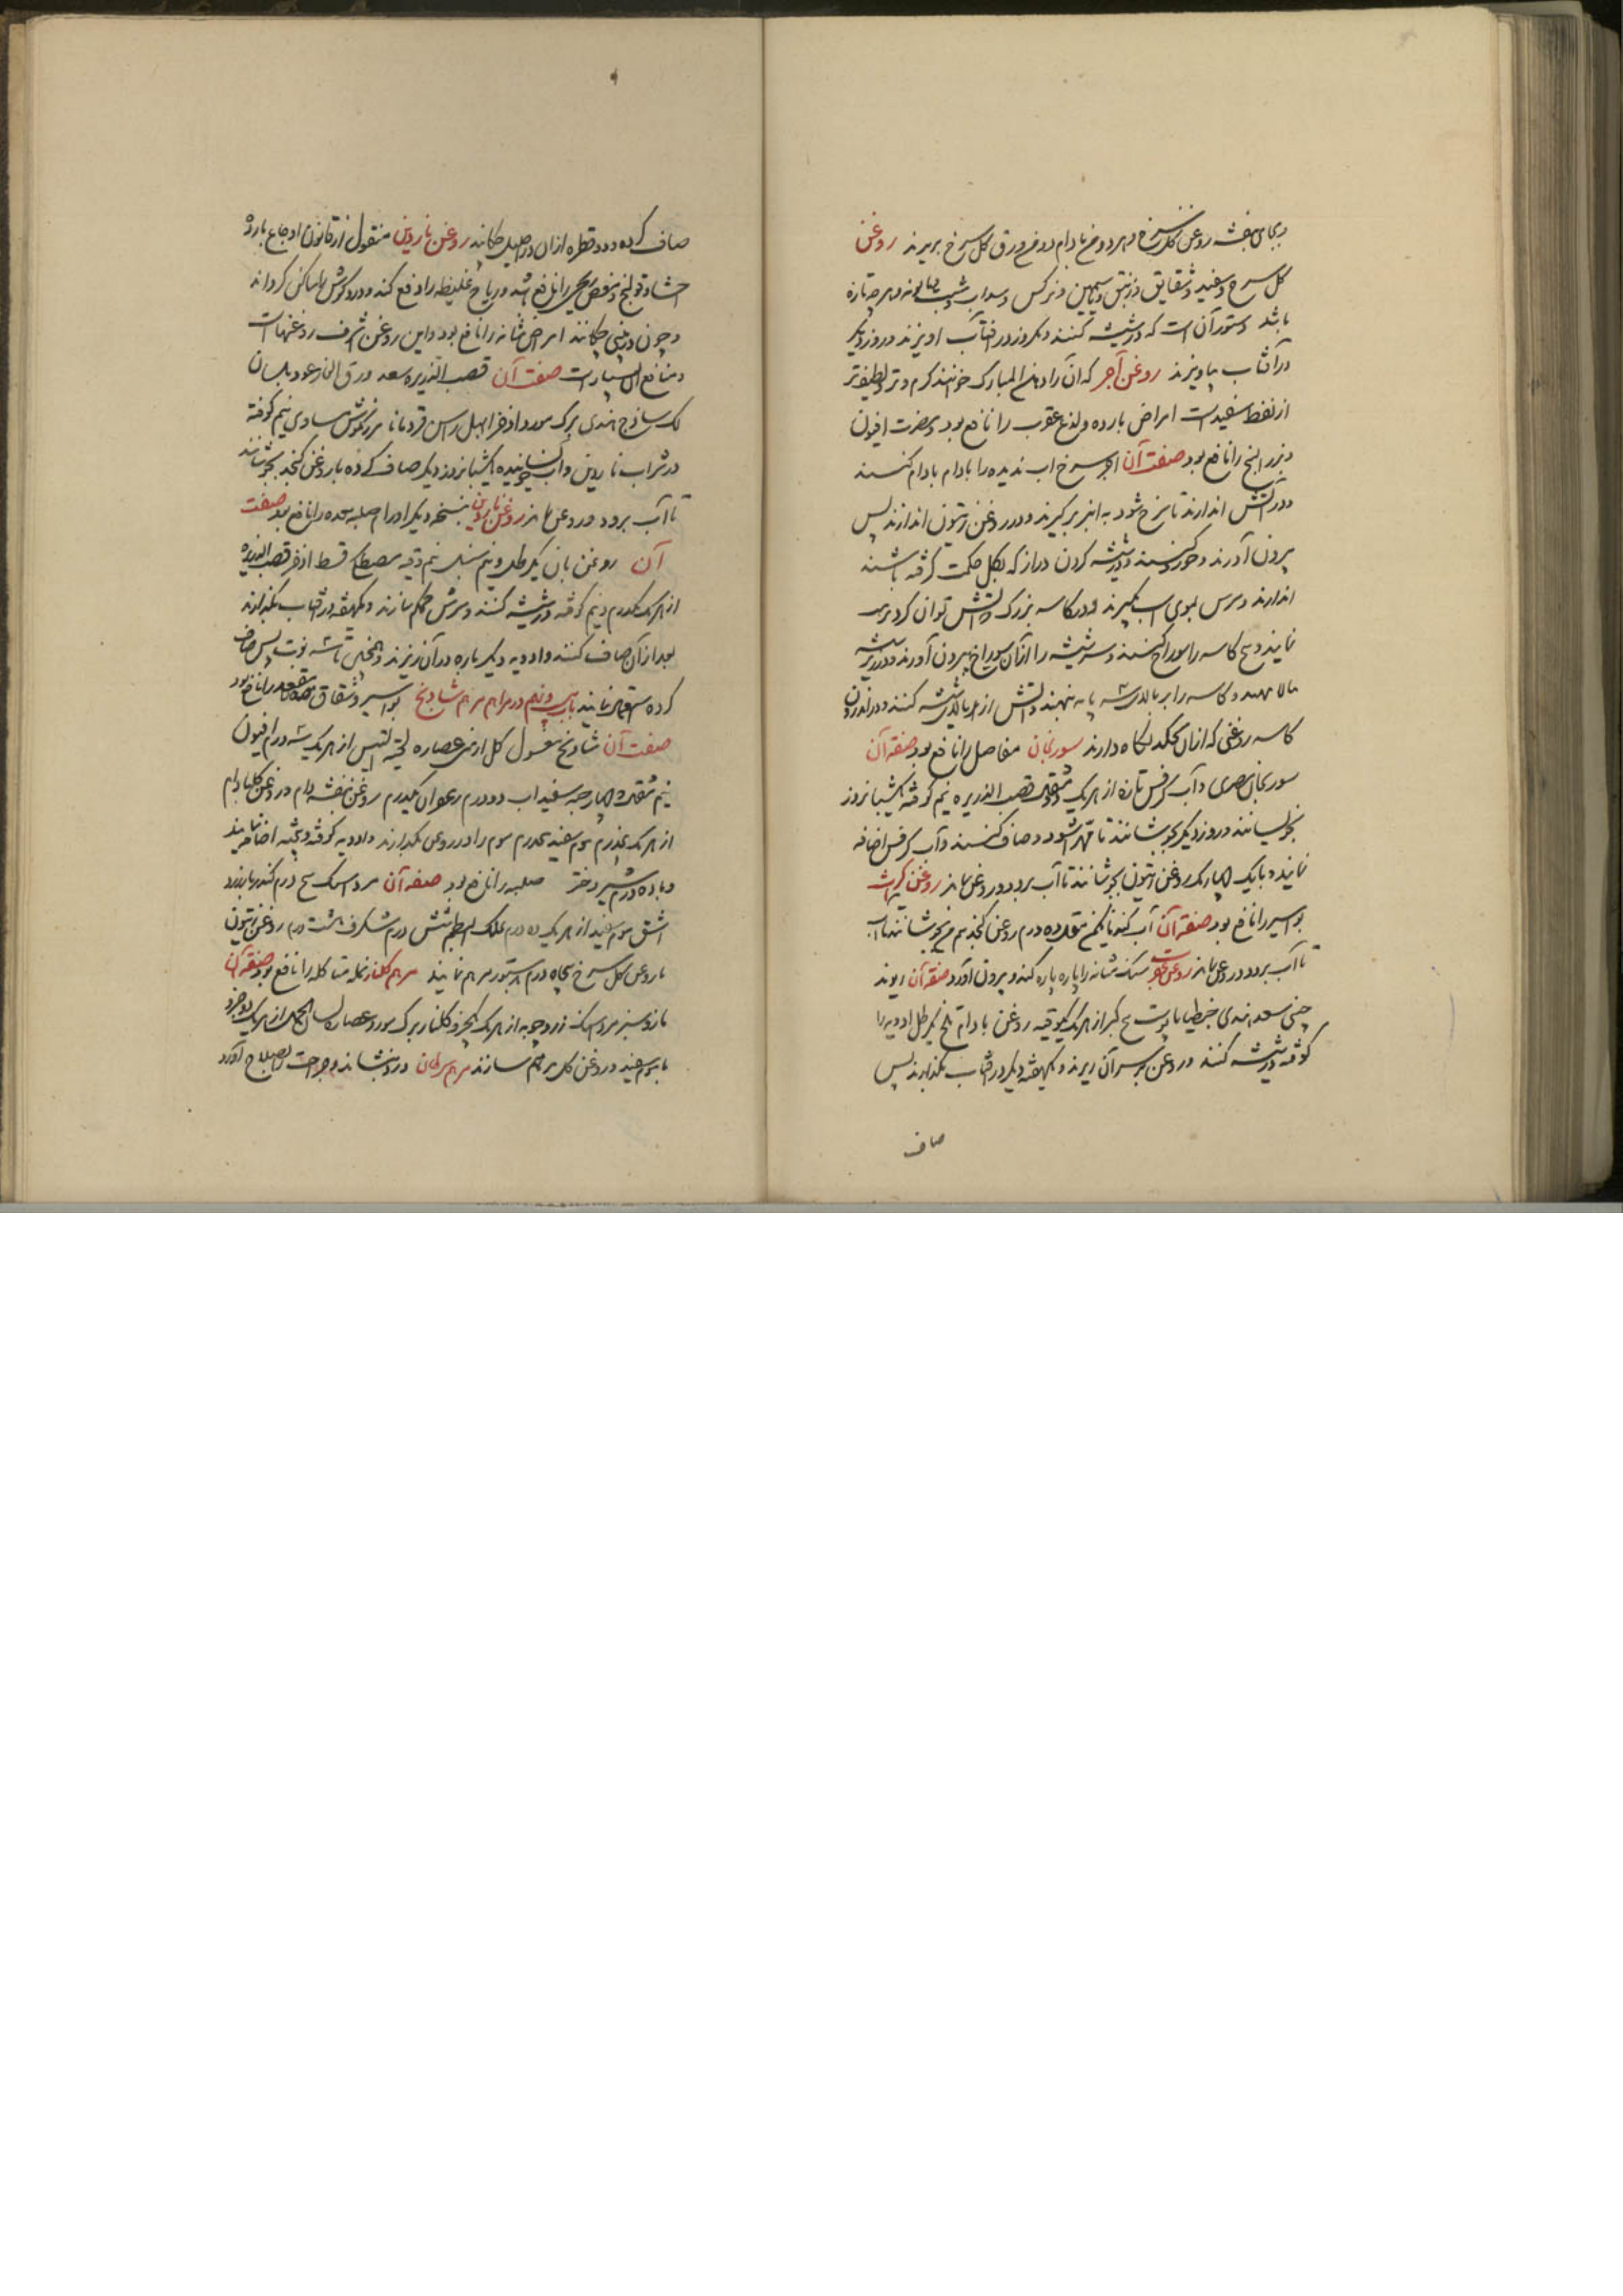 و بجای بنفشه روغن گل سرخ و هر دو مغز بادام ورق گل سرخ بریزند روغن
گل سرخ و سفید و شقایق و زنبق و یاسمین و نرگس و سداب و شبت و بابونه و هر چه تازه
باشد دستور آن است که در شیشه کنند و یکروز در آفتاب آویزند و روز دیگر
در آفتاب بیاویزند روغن آجر که آن را دهن المبارک خوانند گرم و تر و لطیفتر
از نفط سفید است امراض بارده و لدغ عقرب را نافع بود و مضرت افیون
و بزر البنج را نافع بود صفت آن آجر سرخ آب ندیده را بادام بادام کنند
و در آتش اندازند تا سرخ شود به انبر برگیرند و در روغن زیتون اندازند پس
بیرون آورند و خورد کنند و در شیشه گردن دراز که بگل حکمت گرفته باشند
اندازند و سرش بموی اسب بگیرند و در کاسه بزرگ که آتش توان کرد
نمایند و بیخ کاسه را سوراخ کنند و سر شیشه را از آن سوراخ بیرون آورند و در زیر شیشه
نهند و کاسه را بر بالای سه پایه نهند و آتش از بالای شیشه کنند و در اندرون
کاسه روغنی که از آن چکد نگاه دارند سورنجان مفاصل را نافع بود صفة آن
سورنجان مصری و آب کرفس تازه از هر یک قصب الذریره نیم کوفته یکشبانروز
بخوسانند و روز دیگر بجوشانند تا مهرا شود و صاف کنند و آب کرفس اضافه
نمایند و با یک چهاریک روغن زیتون بجوشانند تا آب برود و روغن بماند روغن کراث
بواسیر را نافع بود صفة آن آب گندنا ده درم روغن کنجد بیخ بجوشانند
تا آب برود و روغن بماند روغن عقرب سنگ مثانه را پاره پاره کند و بیرون آورد صفة آن ریوند
چینی سعد هندی جنطیانا پوست بیخ کبر از هر یک یکوقیه روغن بادام تلخ یکرطل ادویه را
کوفته در شیشه کنند و روغن بر سر آن ریزند و یکهفته دیگر در آفتاب بگذارند پس
صاف
صاف کرده دو قطره از آن در احلیل چکانند روغن ناردین منقول از قانون اوجاع بارده
احشا و قولنج و مغص ریحی را نافع باشد و ریاح غلیظه را دفع کند و درد گوش را ساکن گرداند
و چون در بینی چکانند امراض مثانه را نافع بود و این روغن اشرف روغنهاست
و منافع آن بسیار است صفت آن قصب الذریره سعد ورق الغار عود بلسان
لک ساذج هندی برگ مورد اذخر ابهل راسن قردمانا مرزنگوش مساوی نیم کوفته
در شراب ناردین و آب خیسانیده یکشبانروز دیگر صاف کرده با روغن کنجد بجوشانند
تا آب برود و روغن بماند روغن ناردین بنسخه دیگر اورام صلبه معده را نافع بود صفت
آن روغن بان یکرطل و نیم سنبل نیم وقیه مصطکی قسط اذخر قصب الذریره
از هر یک یکدرم و نیم کوفته در شیشه کنند و سرش محکم سازند و یکهفته در آفتاب بگذارند
بعد از آن صاف کنند و ادویه دیگر باره در آن ریزند و همچنین تا سه نوبت پس صاف
کرده استعمال نمایند باب سی و نهم در مراهم مرهم شادنج بواسیر و شقاق مقعد را نافع بود
صفت آن شادنج مغسول گل ارمنی عصاره لحیة التیس از هر یک سه درم افیون
نیم مثقال سفیداب دو درم زعفران یکدرم روغن بنفشه بادام و روغن گل بادام
از هر یک موم سفید موم را در روغن بگدازند و ادویه کوفته و بیخته اضافه نمایند
و با ده درم شیر دختر صلبه را نافع بود صفة آن مرداسنگ پنج درم کندر
اشق موم سفید از هر یک ده درم علک البطم شش درم شنگرف هشت درم روغن زیتون
با روغن گل سرخ پنجاه درم بدستور مرهم نمایند مرهم گلنار نمله متاکله را نافع بود صفة آن
مازو سبز مرداسنگ زردچوبه از هر یک یکجزو گلنار برگ مورد عصاره لسان الحمل از هر یک دو جزو
با موم سفید و روغن گل مرهم سازند مرهم سرطان درد بنشاند و جراحت بصلاح آورد